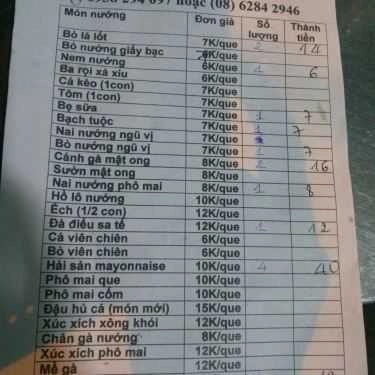 hoặc (08) 6284 2946
Món nướng Đơn giá Số lượng Thành tiền
Bò lá lốt 7K/que 2 14
Bò nướng giấy bạc K/que
Nem nướng 7K/que
Ba rọi xá xíu 7K/que 1 6
Cá kèo (1con) 7K/que
Tôm (1con) 7K/que
Bẹ sữa 7K/que 1 7
Bạch tuộc 7K/que 1 7
Nai nướng ngũ vị 7K/que
Bò nướng ngũ vị 7K/que 1 7
Cánh gà mật ong 8K/que 2 16
Sườn mật ong 8K/que
Nai nướng phô mai 8K/que 1 8
Hồ lô nướng 10K/que
Ếch (1/2 con) 12K/que
Đà điểu sa tế 12K/que 1 12
Cá viên chiên 6K/que
Bò viên chiên 6K/que
Hải sản mayonnaise 10K/que 4 40
Phô mai que 10K/que
Phô mai cốm 10K/que
Đậu hủ cá (món mới) 15K/que
Xúc xích xông khói 12K/que
Chân gà nướng 8K/que
Xúc xích phô mai 12K/que
Mề gà